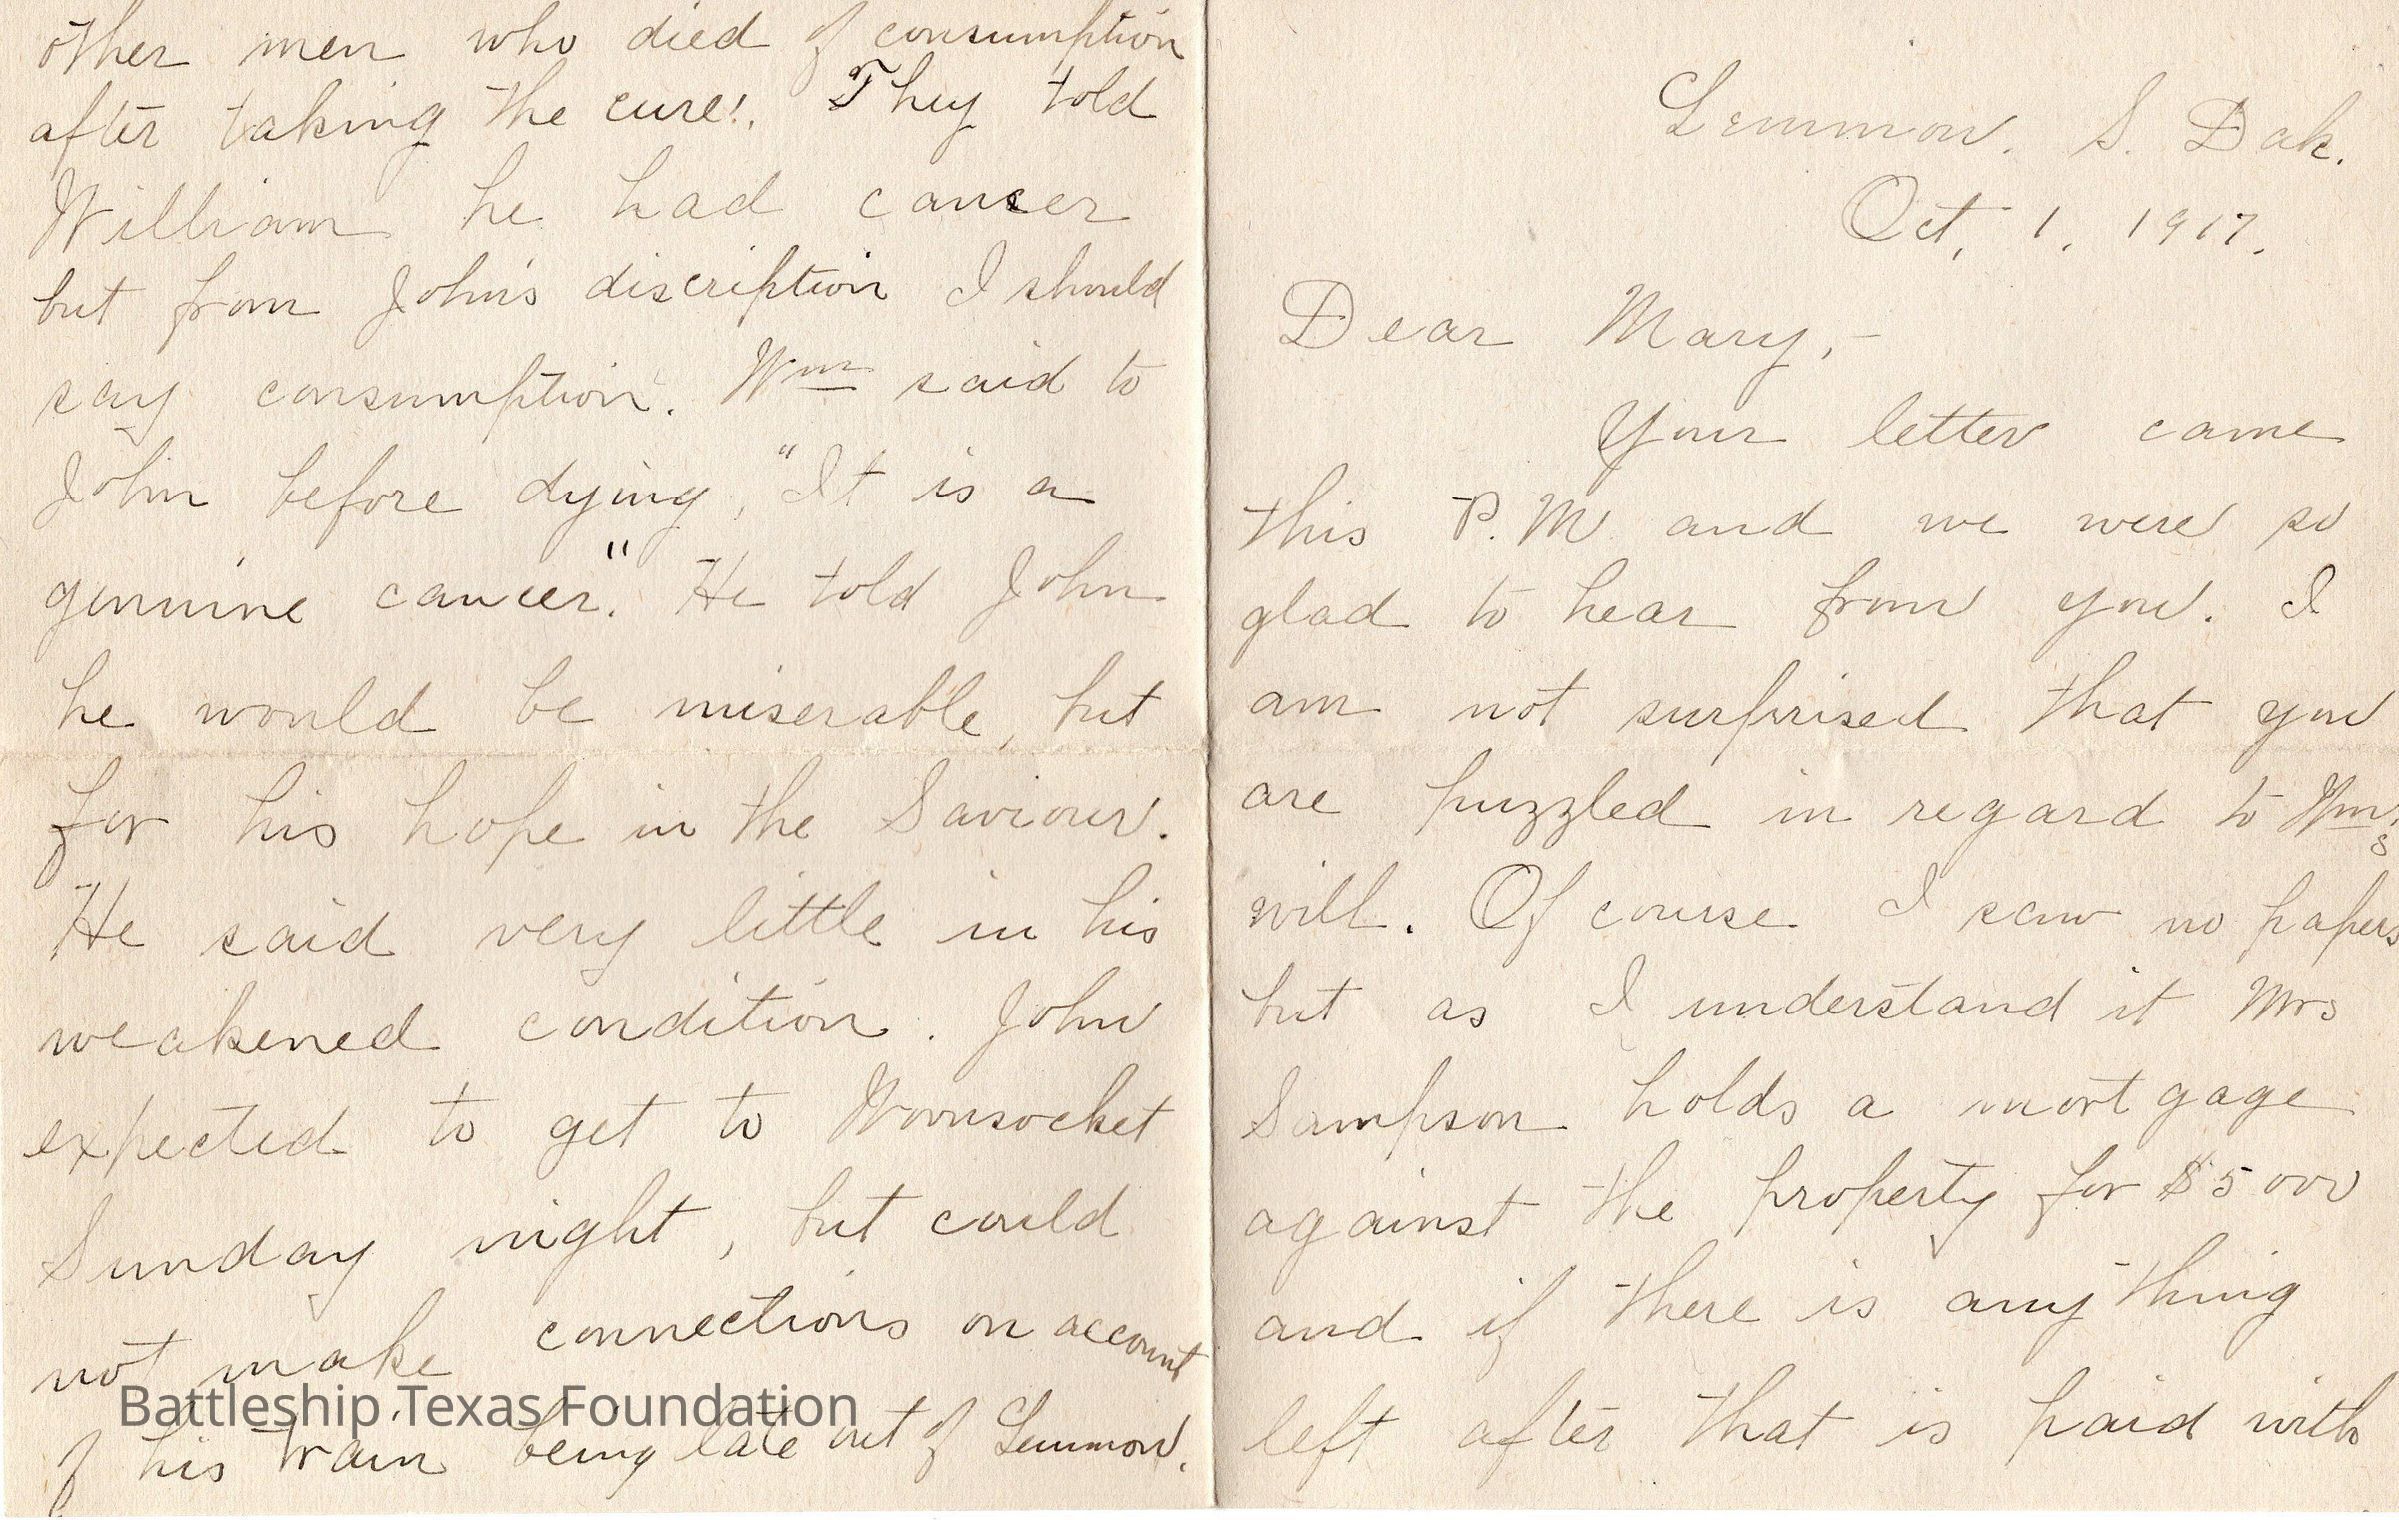 other men who died of consumption
after taking the cure!. They told
William he had cancer
but from John's discription I should
say consumption. Wm said to
John before dying, "It is a
genuine cancer." He told John
he would be miserable, but
for his hope in the Saviour.
He said very little in his
weakened condition. John
expected to get to Woonsocket
Sunday night, but could
not make connections on account
of his train being late out of Lemmon.
Battleship Texas Foundation
Lemmon. S. Dak.
Oct, 1. 1917.
Dear Mary,-
Your letter came
this P.M and we were so
glad to hear from you. I
am not surprised that you
are puzzled in regard to Wm's
will. Of course I saw no papers
but as I understand it Mrs
Sampson holds a mortgage
against the property for $5000
and if there is anything
left after that is paid with